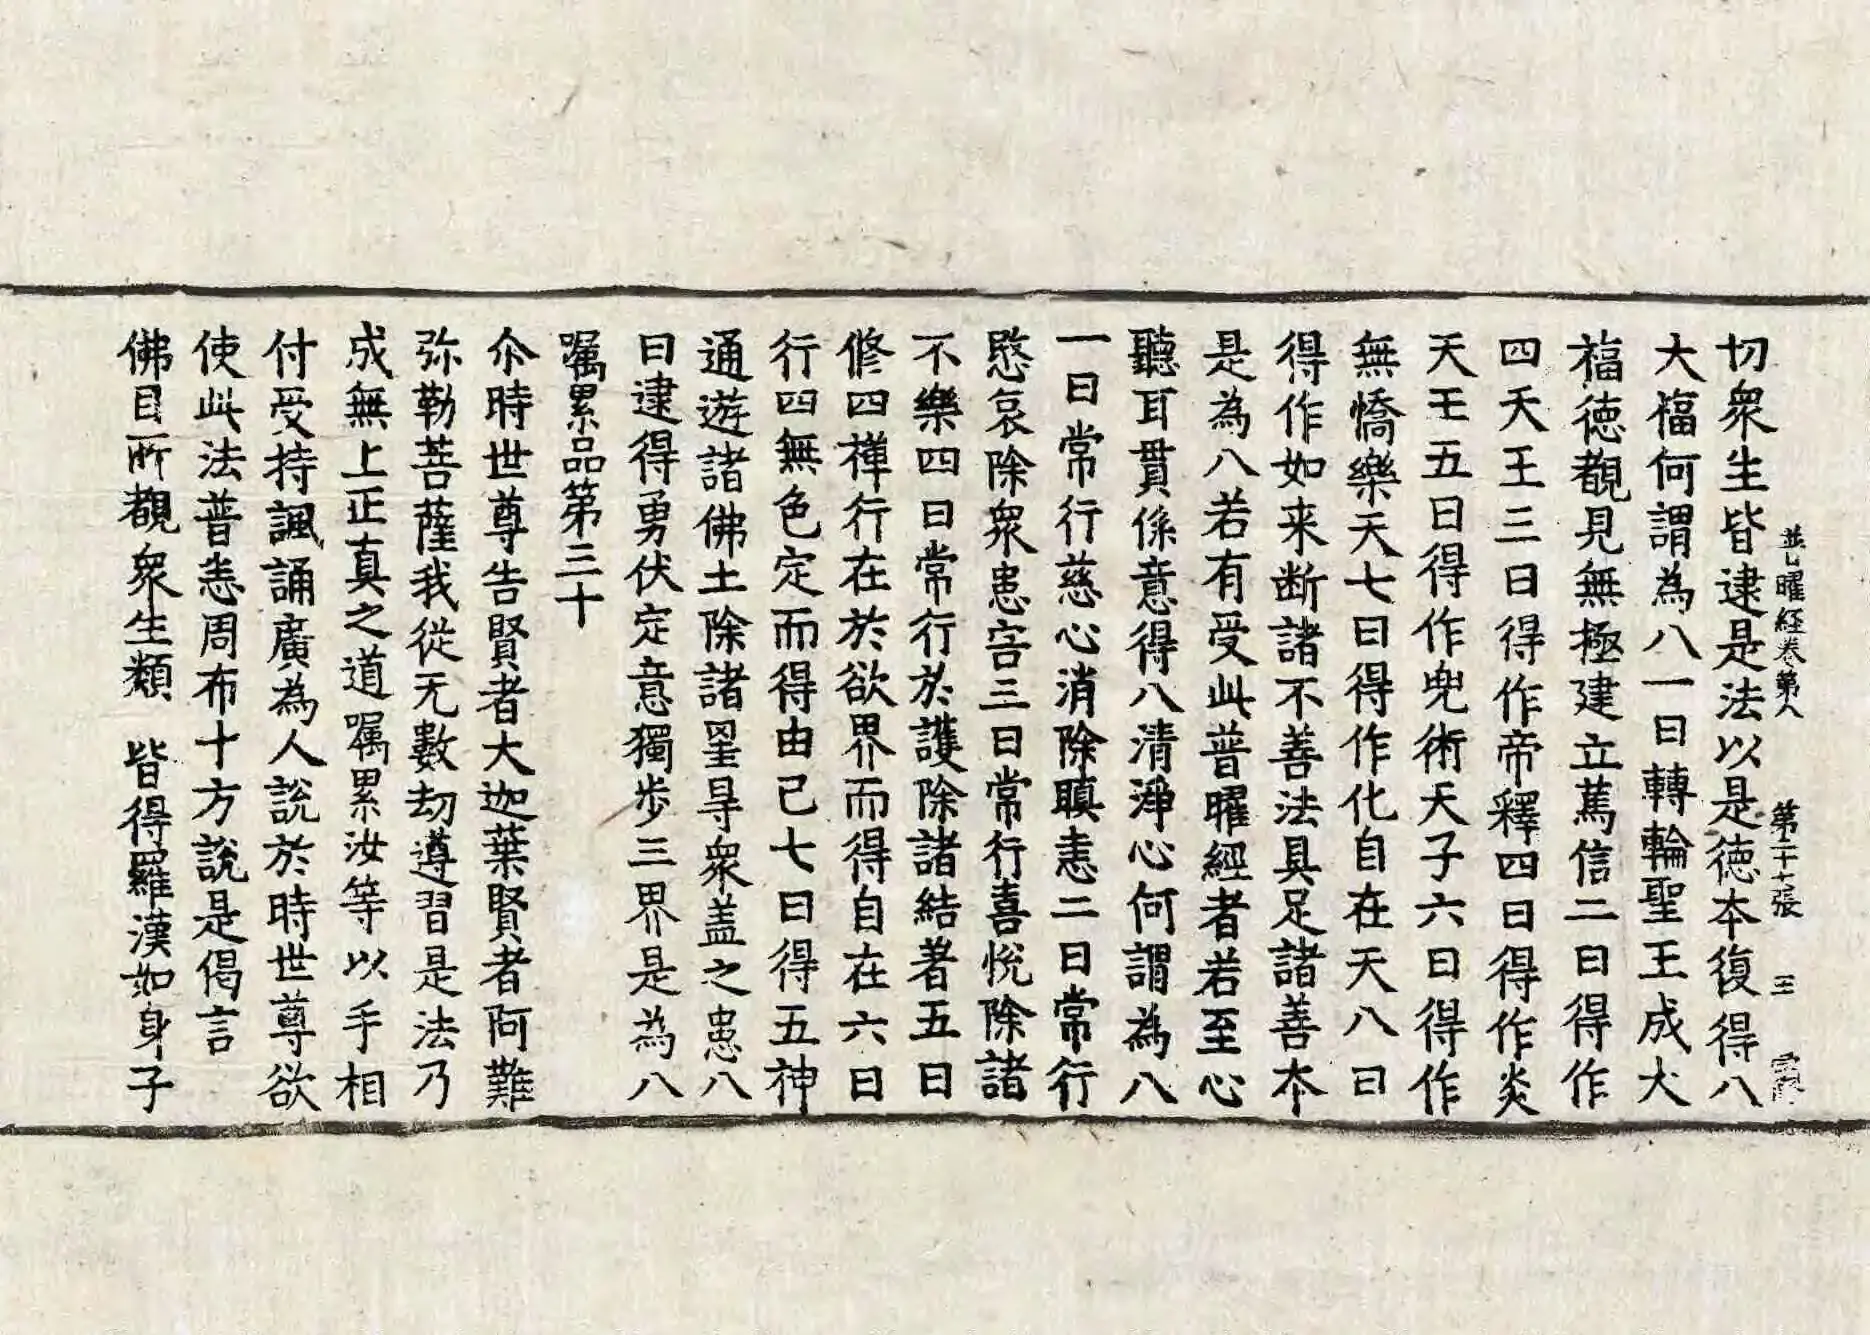 普曜経卷第八 第二十張 王
切衆生皆逮是法以是德本復得八
大福何謂為八一曰轉輪聖王成大
福德覩見無極建立篤信二曰得作
四天王三曰得作帝釋四曰得作炎
天王五曰得作兜術天子六曰得作
無憍樂天七曰得作化自在天八曰
得作如来断諸不善法具足諸善本
是為八若有受此普曜經者若至心
聽耳貫係意得八清淨心何謂為八
一曰常行慈心消除瞋恚二曰常行
愍哀除衆患害三曰常行喜悅除諸
不樂四曰常行於護除諸結著五曰
修四禅行在於欲界而得自在六曰
行四無色定而得由己七曰得五神
通遊諸佛土除諸罣㝵衆盖之患八
曰逮得勇伏定意獨步三界是為八
嘱累品第三十
尒時世尊告賢者大迦葉賢者阿難
弥勒菩薩我從无數劫遵習是法乃
成無上正真之道嘱累汝等以手相
付受持諷誦廣為人說於時世尊欲
使此法普悉周布十方說是偈言
佛目所覩衆生類 皆得羅漢如身子